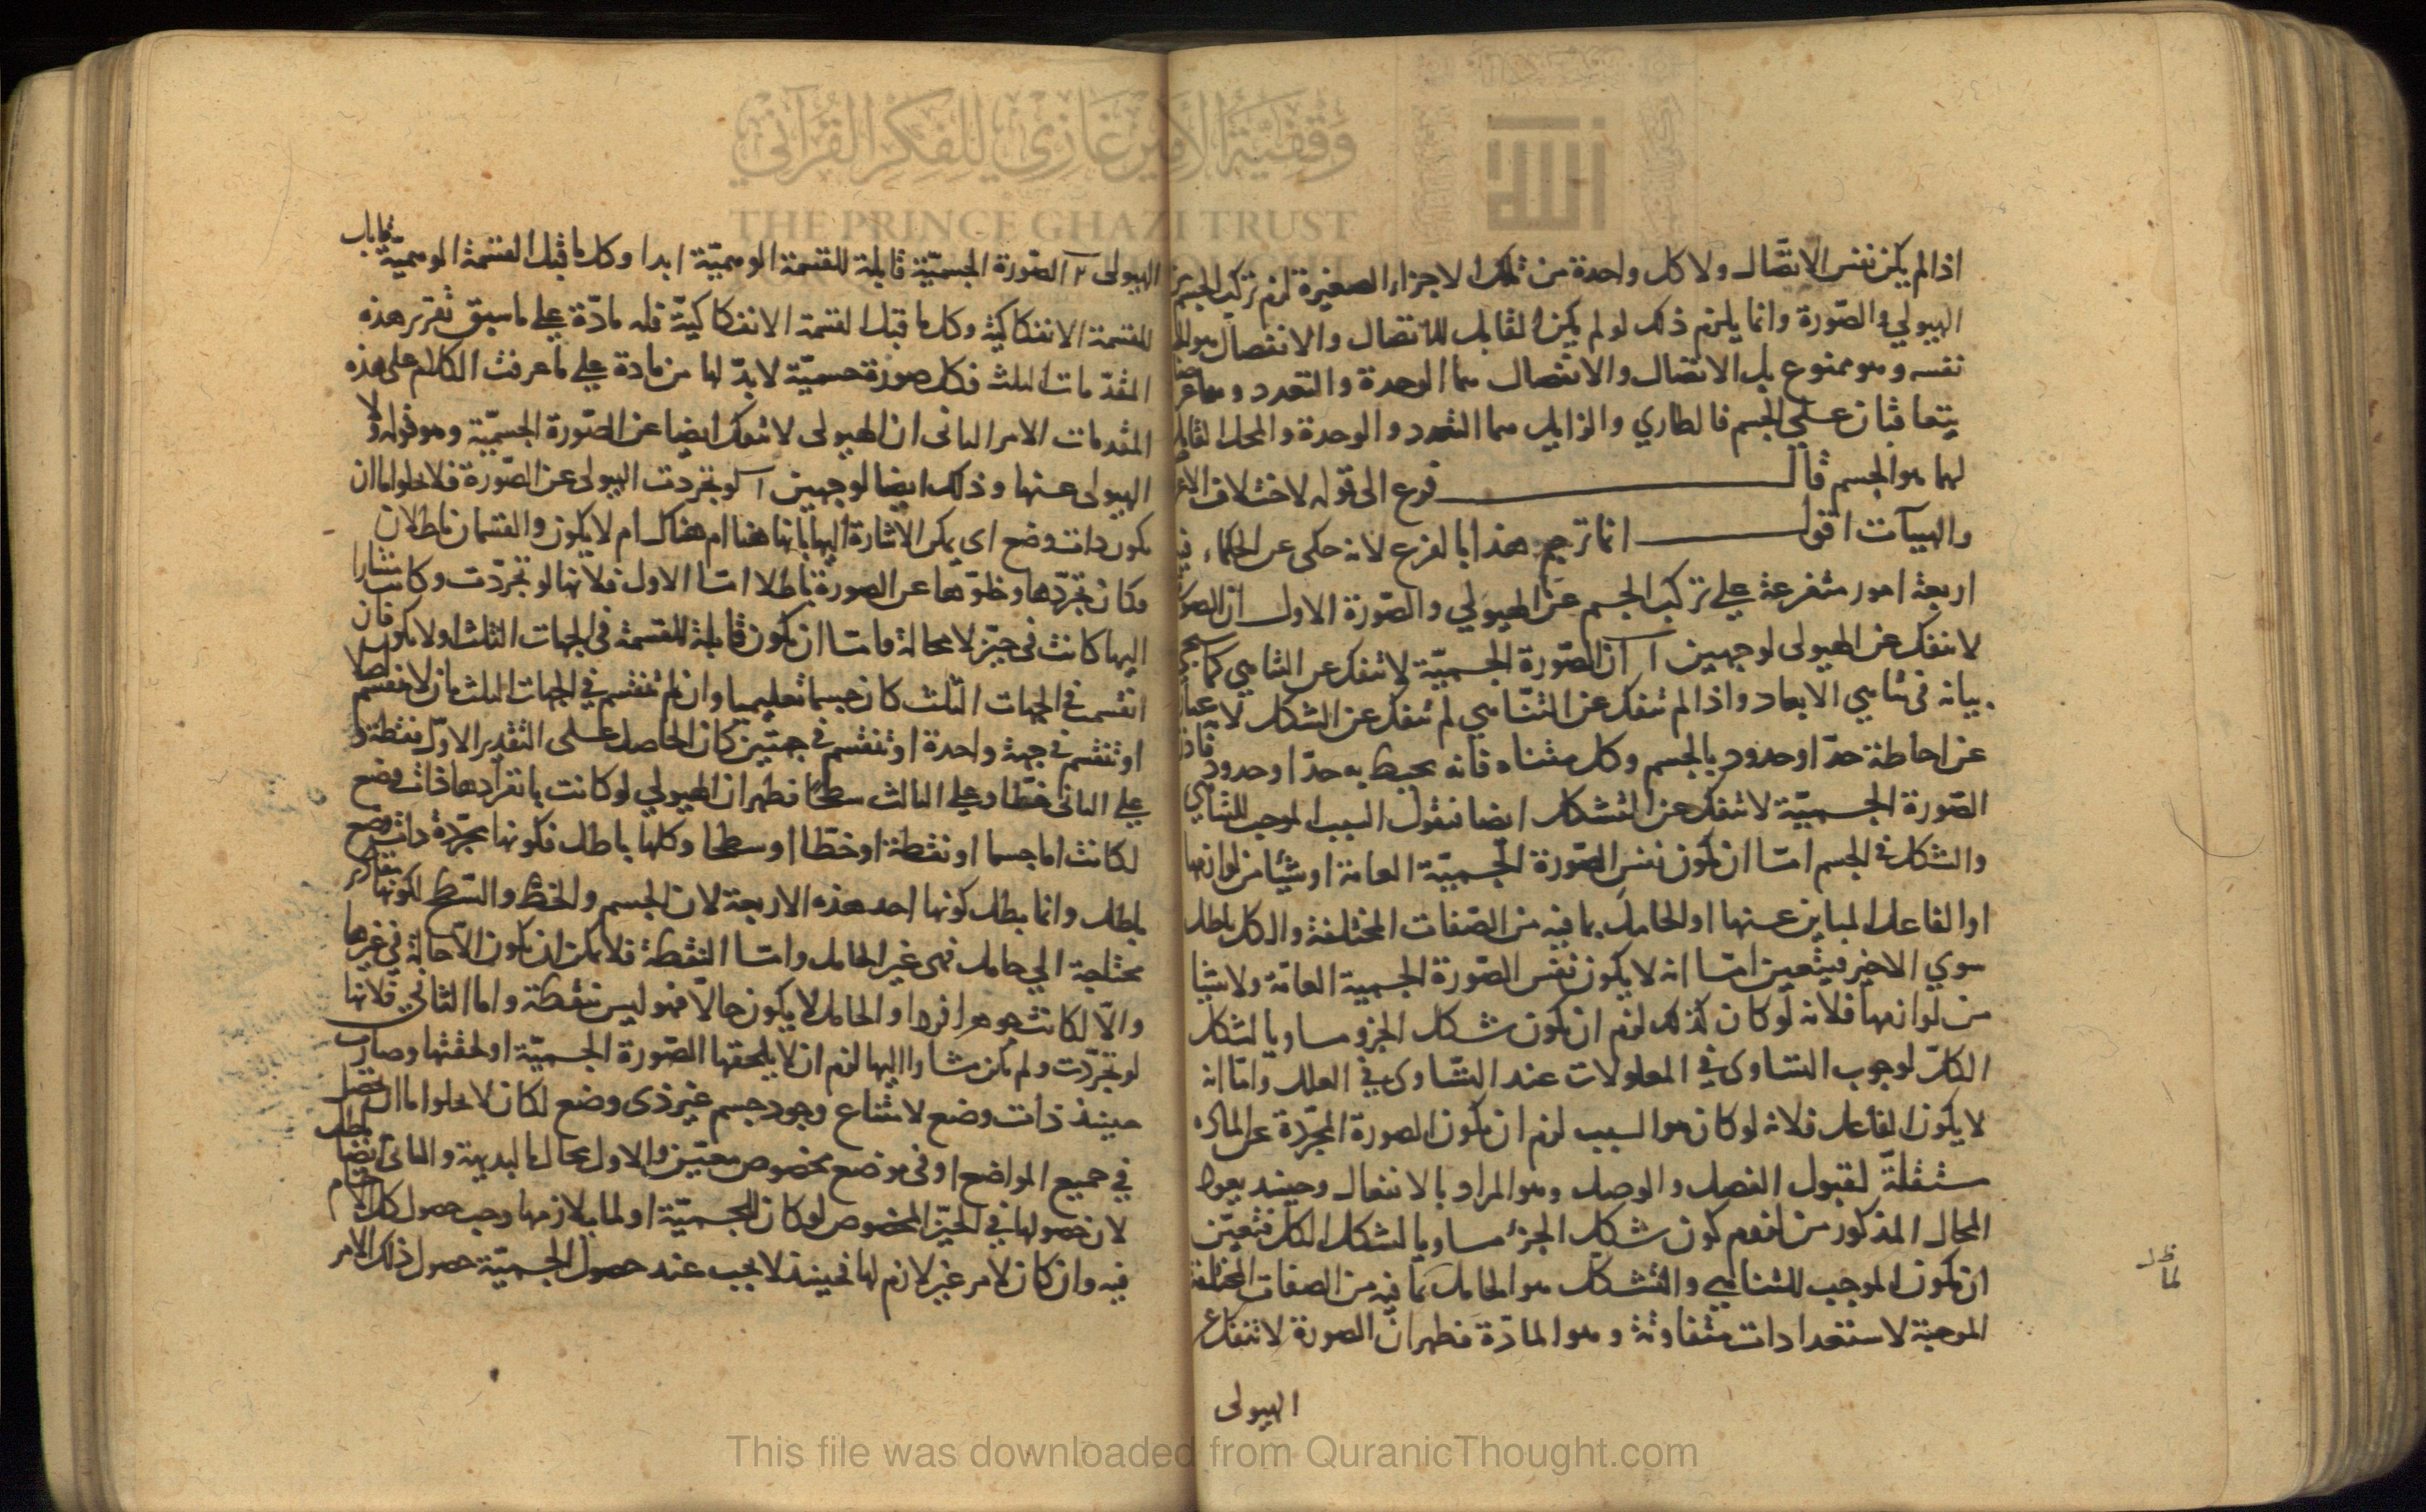 اذا لم يكن نفس الاتصال ولا كل واحدة من تلك الاجزاء الصغيرة لزم تركب الجسم من
الهيولي والصورة وانما يلزم ذلك لو لم يكن القابل للاتصال والانفصال هو الجسم
نفسه وهو ممنوع بل الاتصال والانفصال هما الوحدة والتعدد وهما عرضان
يتعاقبان على الجسم فالطاري والزايل هما التعدد والوحدة والمحل القابل
لهما هو الجسم قال فرع الى قوله لاختلاف الاثار
والهيآت اقول انما ترجم هذا بالفرع لانه حكى عن الحكماء فيه
اربعة امور متفرعة علي تركب الجسم عن الهيولي والصورة الاول ان الصورة
لا تنفك عن الهيولى لوجهين آ ان الصورة الجسمية لا تنفك عن التناهي كما سيجي
بيانه في تناهي الابعاد واذا لم تنفك عن التناهي لم تنفك عن الشكل لانه عبارة
عن احاطة حد او حدود بالجسم وكل متناه فانه يحيط به حد او حدود فاذن
الصورة الجسمية لا تنفك عن التشكل ايضا فنقول السبب الموجب للتناهي
والشكل في الجسم اما ان يكون نفس الصورة الجسمية العامة او شيئا من لوازمها
او الفاعل المباين عنها او الحامل بما فيه من الصفات المختلفة والكل باطل
سوي الاخير فيتعين اما انه لا يكون نفس الصورة الجسمية العامة ولا شيئا
من لوازمها فلانه لو كان كذلك لزم ان يكون شكل الجزو مساويا لشكل
الكل لوجوب التساوى في المعلولات عند التساوى في العلل واما انه
لا يكون الفاعل فلانه لو كان هو السبب لزم ان يكون الصورة المجردة عن المادة
مستقلة لقبول الفصل والوصل وهو المراد بالانفعال وحينئذ يعود
المحال المذكور من لزوم كون شكل الجزء مساويا لشكل الكل فتعين
ان يكون الموجب للتناهي والتشكل هو الحامل بما فيه من الصفات المختلفة
الموجبة لاستعدادات متفاوتة وهو المادة فظهر ان الصورة لا تنفك عن
الهيولى
الهيولى ٢ الصورة الجسمية قابلة للقسمة الوهمية ابدا وكل ما قبل القسمة الوهمية قابل
للقسمة الانفكاكية وكل ما قبل القسمة الانفكاكية فله مادة علي ما سبق تقرير هذه
المقدمات الثلث فكل صورة جسمية لابد لها من مادة علي ما عرفت الكلام على هذه
المقدمات الامر الثانى ان الهيولى لا تنفك ايضا عن الصورة الجسمية وهو قوله ولا
الهيولى عنها وذلك ايضا لوجهين آ لو تجردت الهيولى عن الصورة فلا يخلوا اما ان
يكون ذات وضع اى يمكن الاشارة اليها بانها هنا ام هناك ام لا يكون والقسمان باطلان
فكان تجردها وخلوها عن الصورة باطلا اما الاول فلانها لو تجردت وكانت مشارا
اليها كانت في حيز لا محالة فاما ان يكون قابلة للقسمة في الجهات الثلث او لا يكون فان
انقسمت في الجهات الثلث كان جسما تعليميا وان لم تنقسم في الجهات الثلث بان لا تنقسم اصلا
او تنقسم في جهة واحدة او تنقسم في جهتين كان الحاصل على التقدير الاول نقطة و
علي الثانى خطا وعلي الثالث سطحا فظهر ان الهيولي لو كانت بانفرادها ذات وضع
لكانت اما جسما او نقطة او خطا او سطحا وكلها باطل فكونها مجردة ذات وضع
باطل وانما يبطل كونها احد هذه الاربعة لان الجسم والخط والسطح لكونها مقادير
محتاجة الي حامل فهى غير الحامل واما النقطة فلا يمكن ان يكون الا حالة في غيرها
والا لكانت جوهرا فردا والحامل لا يكون حالا فهو ليس نقطة واما الثاني فلانها
لو تجردت ولم يكن مشارا اليها لزم ان لا يلحقها الصورة الجسمية او لحقتها وصارت
حينئذ ذات وضع لامتناع وجود جسم غير ذى وضع لكان لا يخلوا اما ان تحصل
في جميع المواضع او في موضع مخصوص معين والاول محال بالبديهة والثانى ايضا باطل
لان حصولها في الحيز المخصوص لو كان للجسمية او لما يلازمها وجب حصول كل الاجسام
فيه وان كان لامر غير لازم لها فحينئذ لا يجب عند حصول الجسمية حصول ذلك الامر
وقفية الأمير غازي للفكر القرآني
THE PRINCE GHAZI TRUST
الله
This file was downloaded from QuranicThought.com